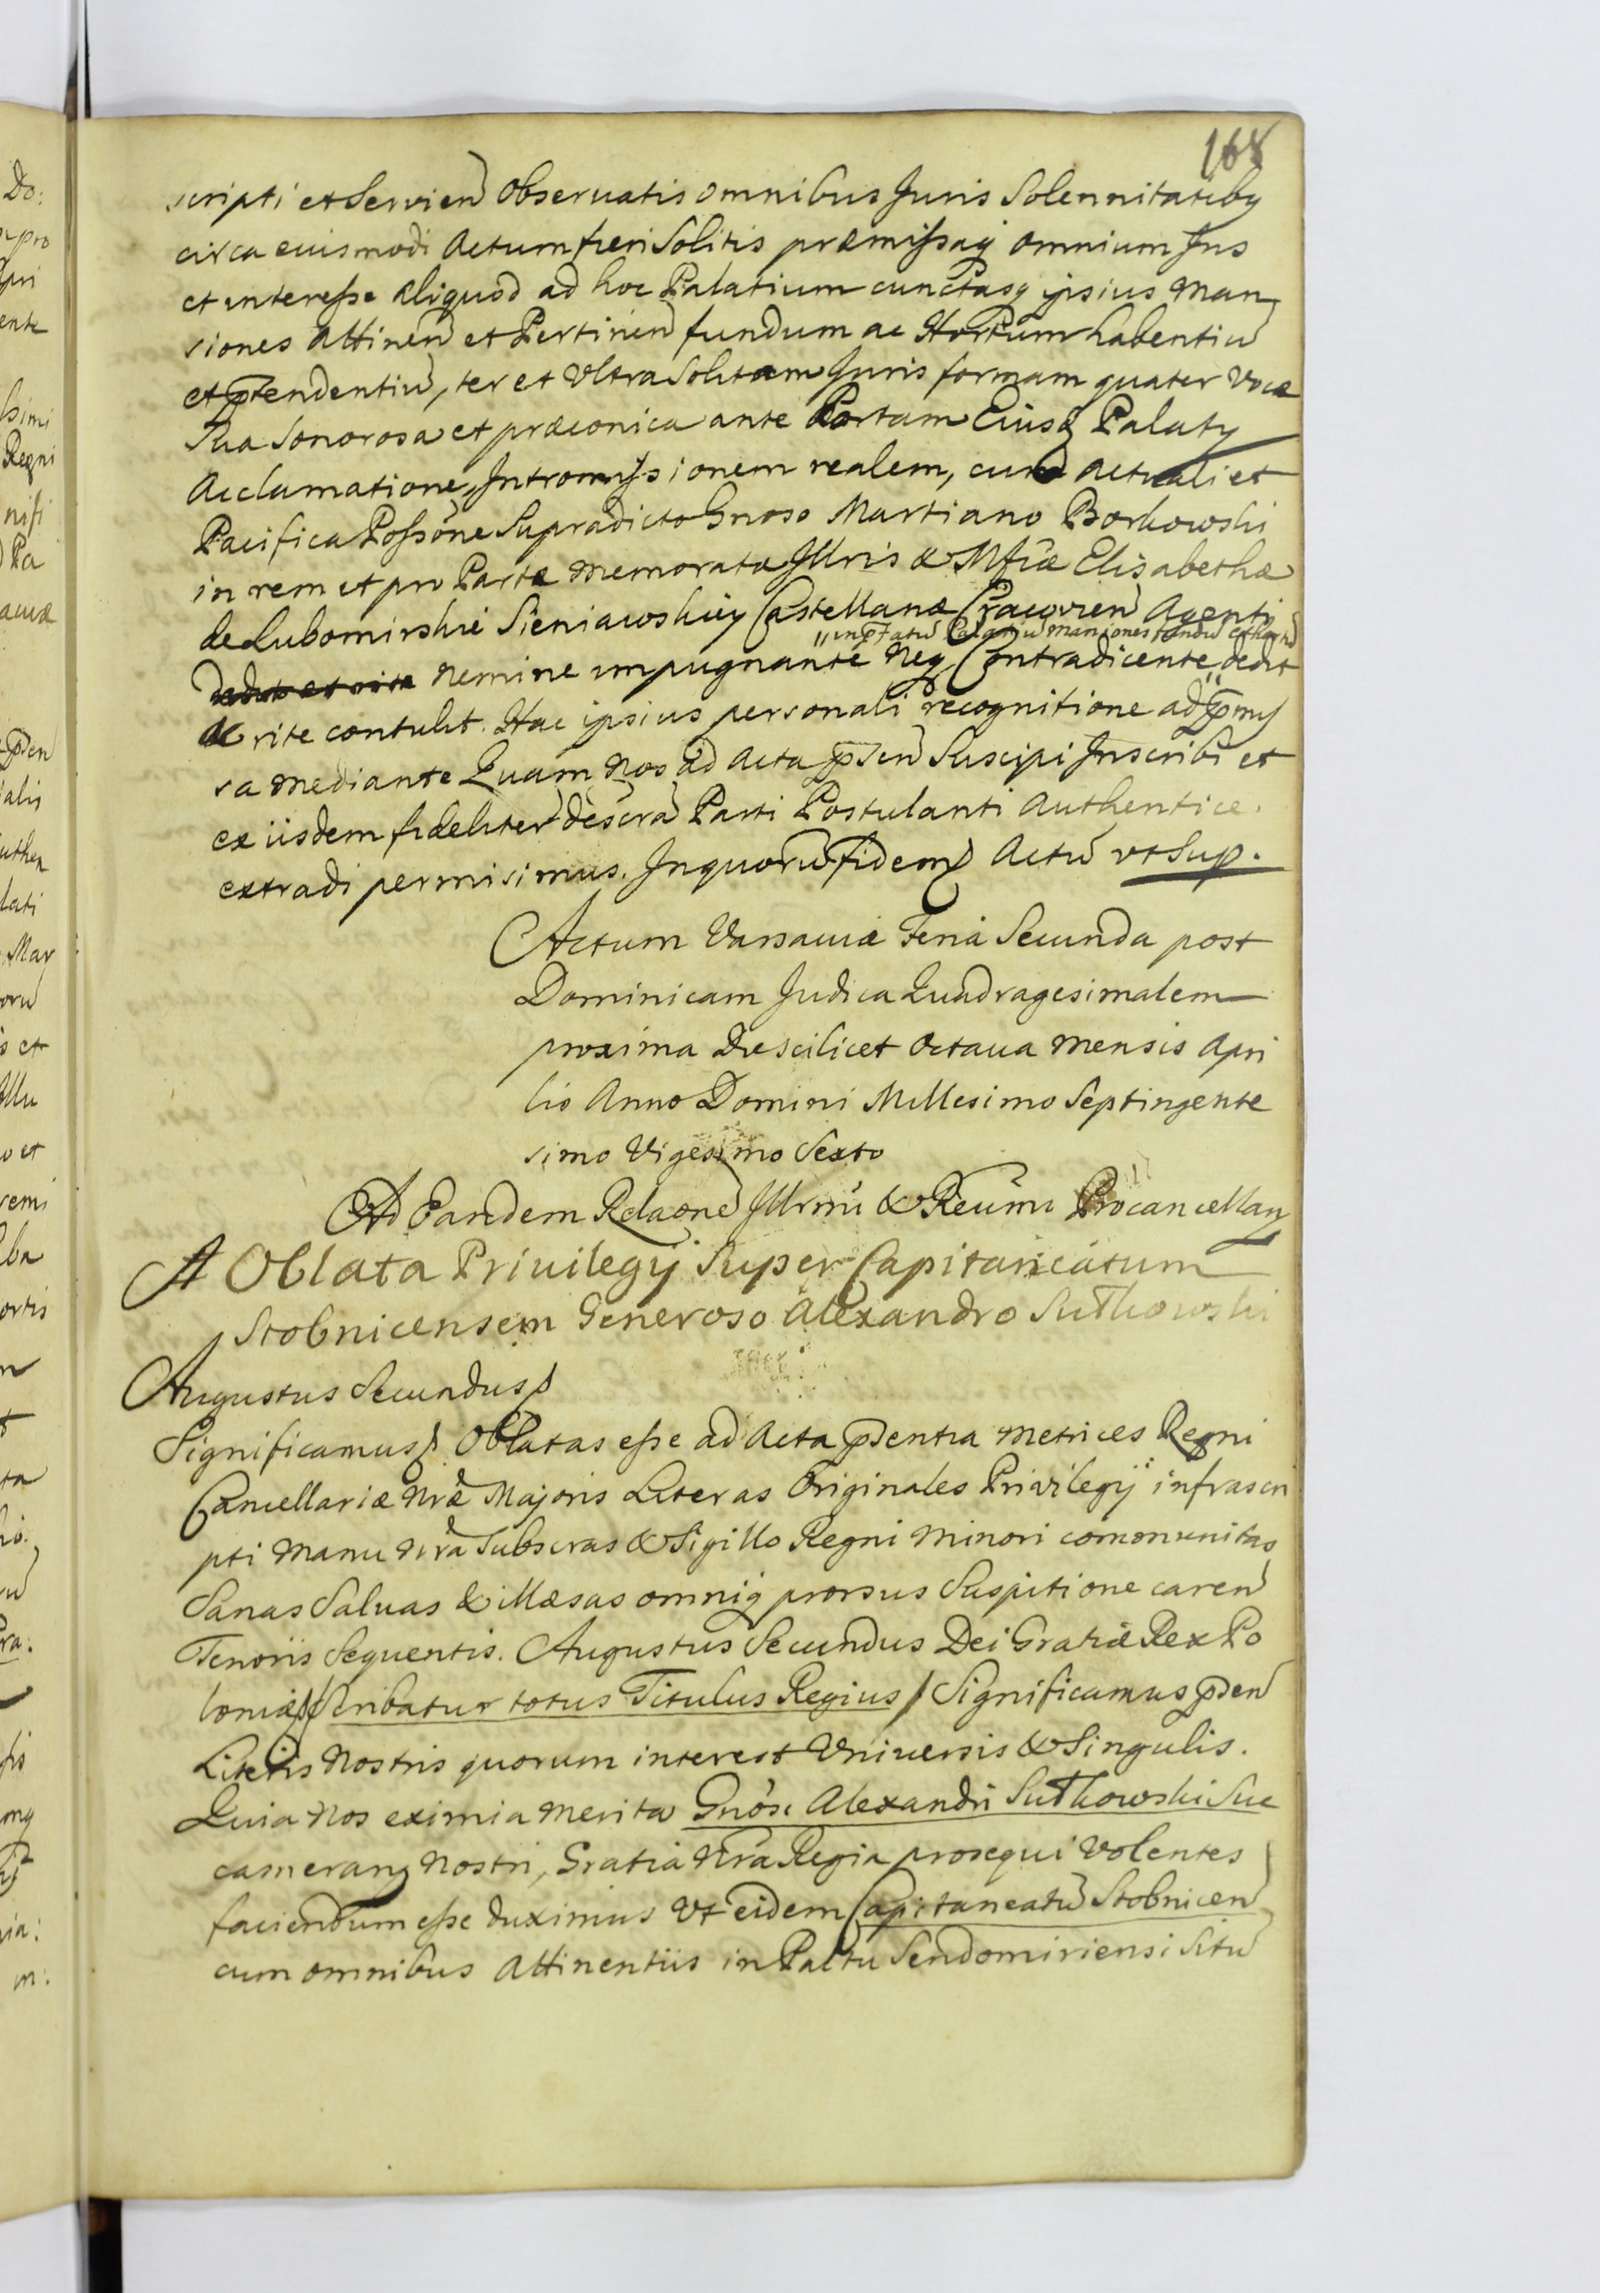 168
scripti et Servien Observatis omnibus Juris Solennitatibg
circa eiusmodi Actum fieri Solitis præmissaq omnium Jus
et interesse aliquod ad hoc Palatium cunctasq ipsius Man
siones Attinen et Pertinen fundum ac Hortum habentiu
et ptendentiu, ter et Ultra Solitam Juris formam quater Voce
Sua Sonorosa et præconica ante Portam Eiusd Palaty
Acclamatione, Intromissionem realem, cum actuali et
Pacifica Possone Supradicto Gnoso Martiano Borkowski
in rem et pro Parte memoratæ Illris & Mficæ Elisabethæ
de Lubomirskie Sieniawskiey Castellanæ Cracovien Agenti
"in pfatu Palatiu Mansiones fundu et hortu
nemine impugnante Neq Contradicente dedit
ac rite contulit. Hac ipsius personali recognitione ad pmis
sa mediante Quam Nos ad Acta psen Suscipi Inscribi et
ex iisdem fideliter descra Parti Postulanti Authentice.
extradi permisimus. In quoru fidem Actu ut Sup.
Actum Varsaviæ Feria Secunda post
Dominicam Judica Quadragesimalem
proxima die scilicet Octava mensis Apri
lis Anno Domini Millesimo Septingente
simo Vigesimo Sexto
Ad Eandem Relaone Illrmi & Reumi Procancellary
A Oblata Privilegij Super Capitaneatum
Stobnicensem Generoso Alexandro Sułkowski
Augustus Secundus
Significamus Oblatas esse ad Acta psentia Metrices Regni
Cancellariæ Nræ Majoris Literas Originales Privilegij infrascri
pti Manu Nra Subscras & Sigillo Regni Minori communitas
Sanas Salvas & illæsas omniq prorsus Suspitione caren
Tenoris Sequentis. Augustus Secundus Dei Gratia Rex Po
loniæ Scribatur totus Titulus Regius Significamus psen
Literis Nostris quorum interest Universis & Singulis.
Quia Nos eximia Merita Gnosi Alexandri Sułkowski Suc
camerary Nostri, Gratia Nra Regia prosequi Volentes
faciendum esse duximus Ut eidem Capitaneatu Stobnicen
cum omnibus Attinentiis in Paltu Sendomiriensi Situ